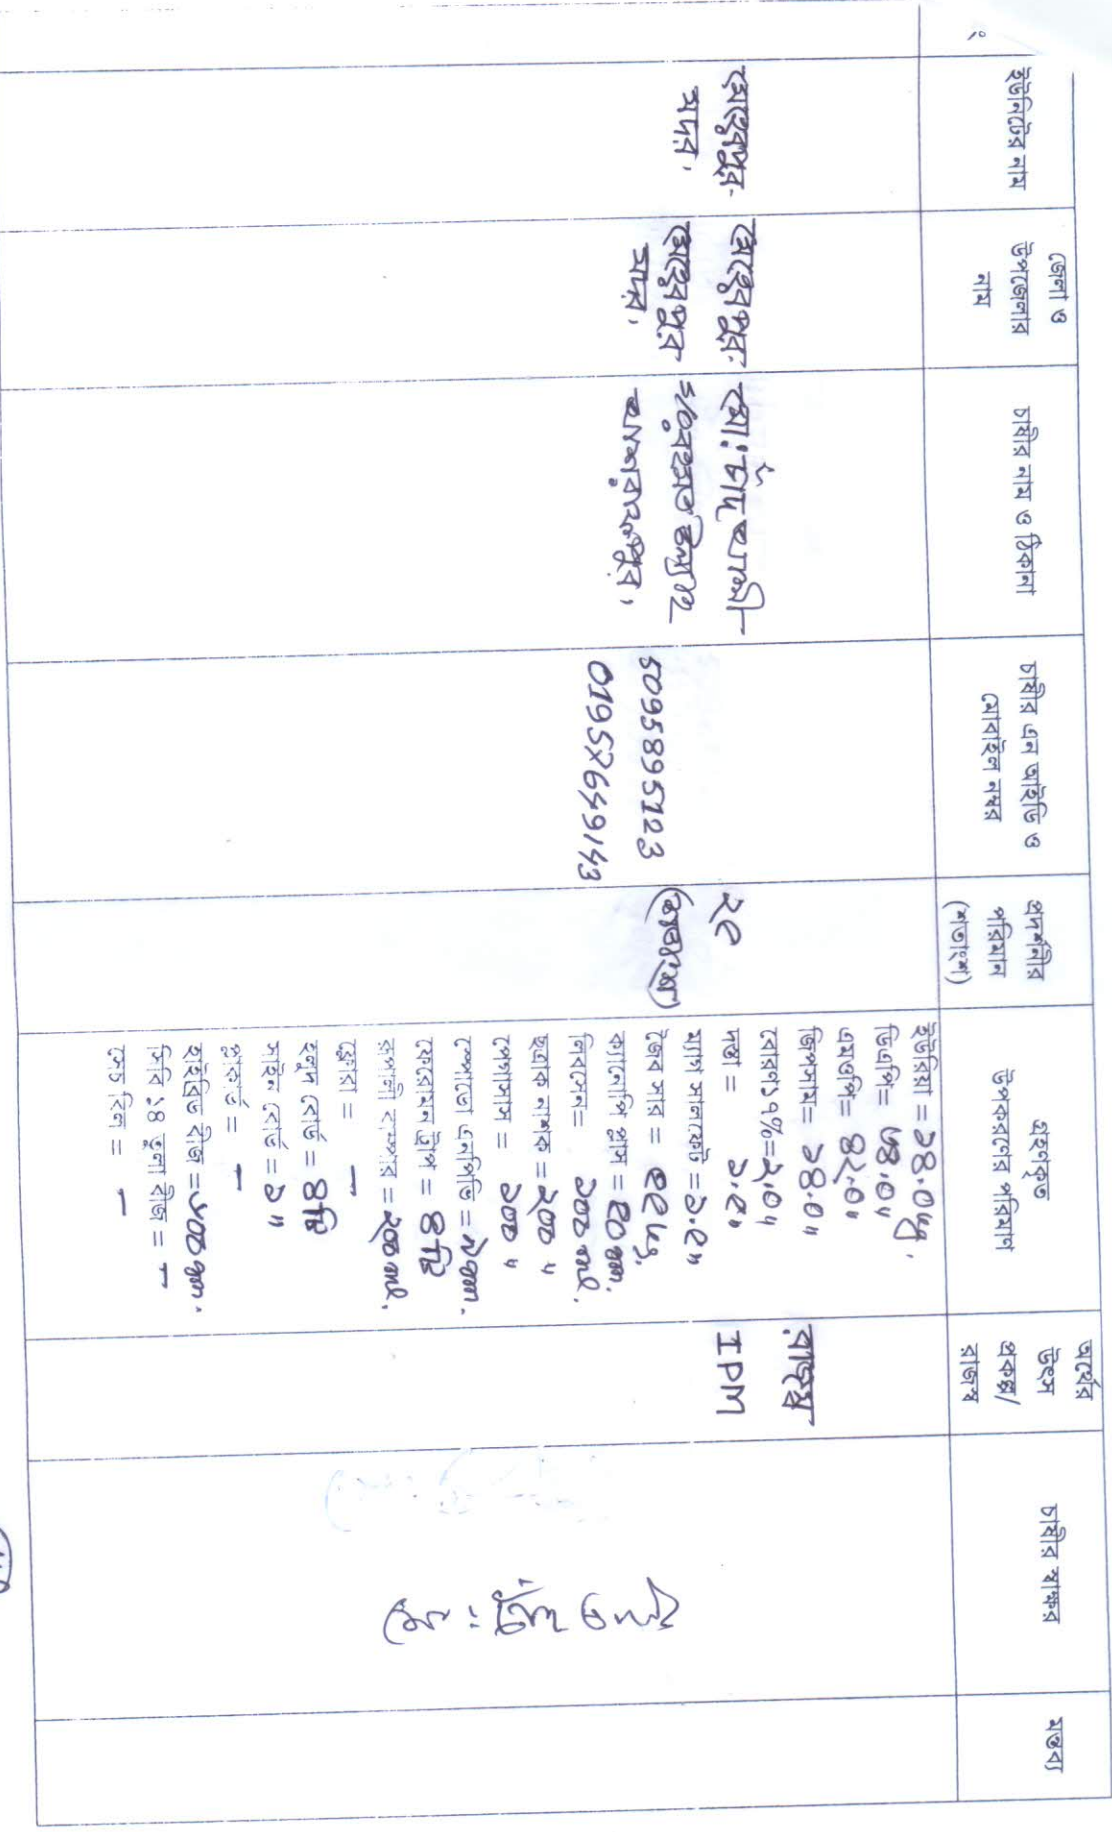 ইউনিটের নাম
জেলা ও
উপজেলার
নাম
চাষীর নাম ও ঠিকানা
চাষীর এন আইডি ও
মোবাইল নম্বর
প্রদর্শনীর
পরিমান
(শতাংশ)
গ্রহণকৃত
উপকরণের পরিমাণ
অর্থের
উৎস
প্রকল্প/
রাজস্ব
চাষীর স্বাক্ষর
মন্তব্য
মেহেরপুর
সদর,
মেহেরপুর
মেহেরপুর
সদর,
মো: চাঁদ আলী
5095895123
২৫
ইউরিয়া = ১৪.০ kg.
ডিএপি= ৩৪.০ "
এমওপি= ৪২.০ "
জিপসাম= ১৪.০ "
বোরণ১৭%=২.০ "
দস্তা = ১.৫ "
ম্যাগ সালফেট = ১.৫ "
জৈব সার = ৫৫ kg.
ক্যানোপি প্লাস = ৫০ gm.
নিবসেন= ১০০ ml.
ছত্রাক নাশক = ২০০ "
পেগাসাস = ১০০ "
স্পোডো এনপিভি = ৯ gm.
ফেরোমন ট্রাপ = ৪টি
রূপালী বাম্পার = ২০০ ml.
ফ্লোরা = —
হলুদ বোর্ড = ৪টি
সাইন বোর্ড = ১ "
প্লাকার্ড = —
হাইব্রিড বীজ = ৬০০ gm.
সিবি ১৪ তুলা বীজ = —
সেচ বিল = —
রাজস্ব
IPM